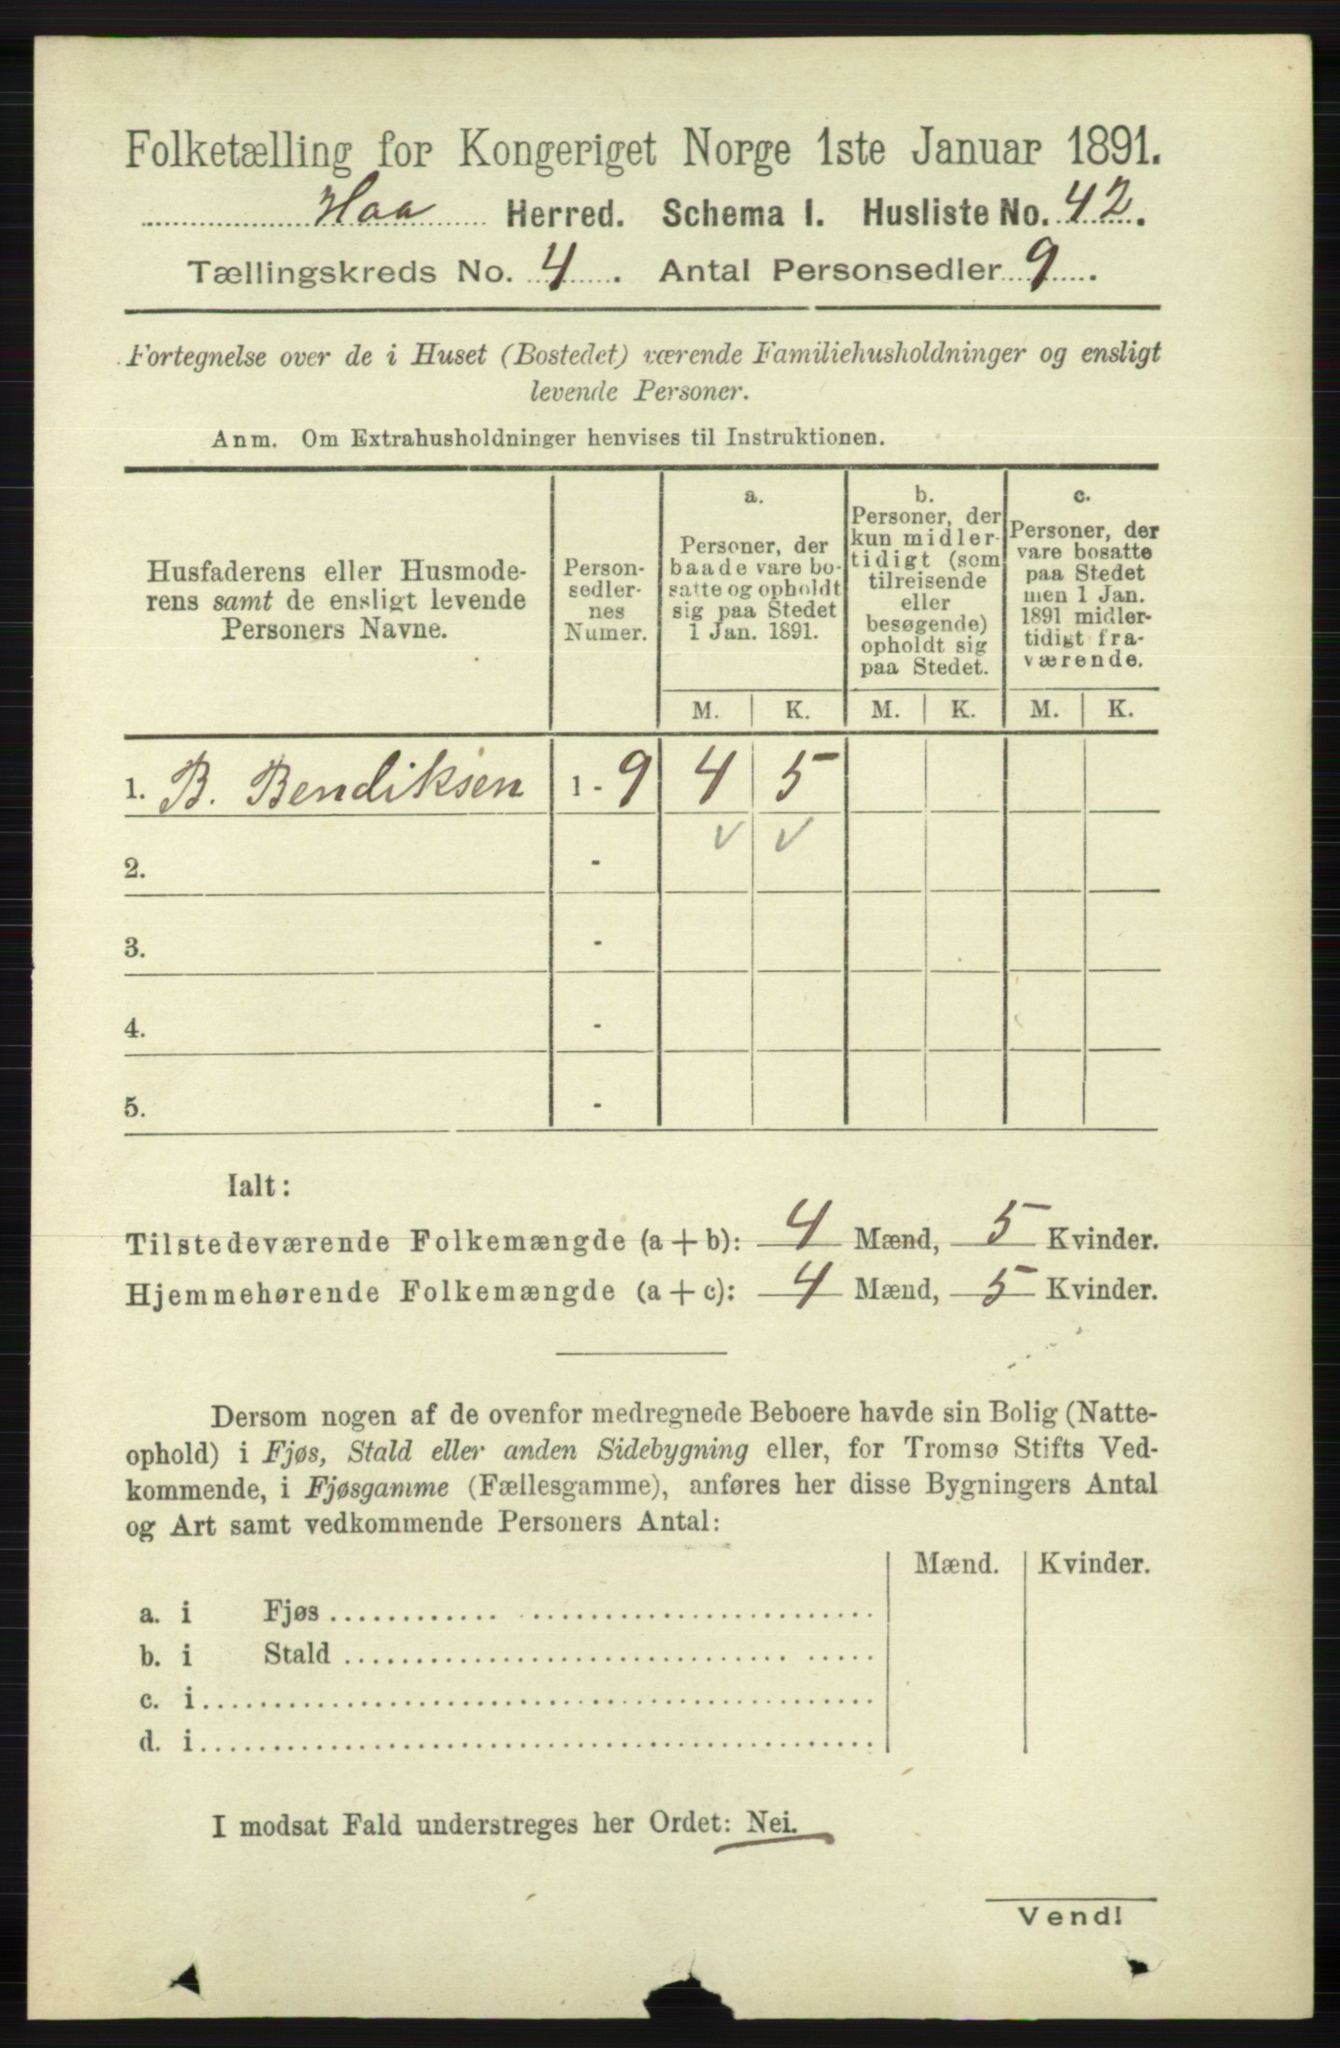 Folketælling for Kongeriget Norge 1ste Januar 1891.
Haa Herred. Schema I. Husliste No. 42.
Tællingskreds No. 4. Antal Personsedler 9.
Fortegnelse over de i Huset (Bostedet) værende Familiehusholdninger og ensligt
levende Personer.
Anm. Om Extrahusholdninger henvises til Instruktionen.
Husfaderens eller Husmode-
rens samt de ensligt levende
Personers Navne.
Person-
sedler-
nes
Numer.
a.
Personer, der
baade vare bo-
satte og opholdt
sig paa Stedet
1 Jan. 1891.
b.
Personer, der
kun midler-
tidigt (som
tilreisende
eller
besøgende)
opholdt sig
paa Stedet.
c.
Personer, der
vare bosatte
paa Stedet
men 1 Jan.
1891 midler-
tidigt fra-
værende.
M. K. M. K. M. K.
1. B. Bendiksen 1 - 9 4 5
2. - ✓ ✓
3. -
4. -
5. -
Ialt:
Tilstedeværende Folkemængde (a + b): 4 Mænd, 5 Kvinder.
Hjemmehørende Folkemængde (a + c): 4 Mænd, 5 Kvinder.
Dersom nogen af de ovenfor medregnede Beboere havde sin Bolig (Natte-
ophold) i Fjøs, Stald eller anden Sidebygning eller, for Tromsø Stifts Ved-
kommende, i Fjøsgamme (Fællesgamme), anføres her disse Bygningers Antal
og Art samt vedkommende Personers Antal:
Mænd. Kvinder.
a. i Fjøs
b. i Stald
c. i
d. i
I modsat Fald understreges her Ordet: Nei.
Vend!